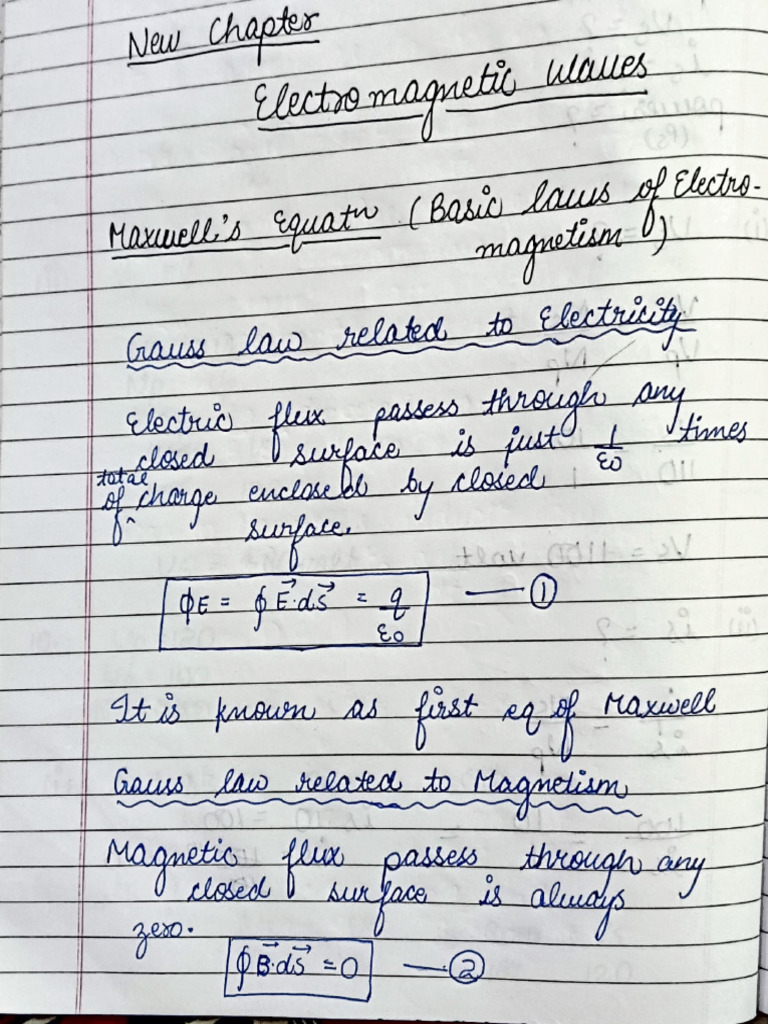 New Chapter
Electromagnetic Waves
Maxwell's Equatn (Basic laws of Electro-
magnetism)
Gauss law related to Electricity
Electric flux passess through any
closed surface is just 1/ε0 times
of total charge enclosed by closed
surface.
ϕE = ∮ E⃗·dS⃗ = q/ε0 —— ①
It is known as first eq of Maxwell
Gauss law related to Magnetism
Magnetic flux passess through any
closed surface is always
zero.
∮ B⃗·dS⃗ = 0 —— ②